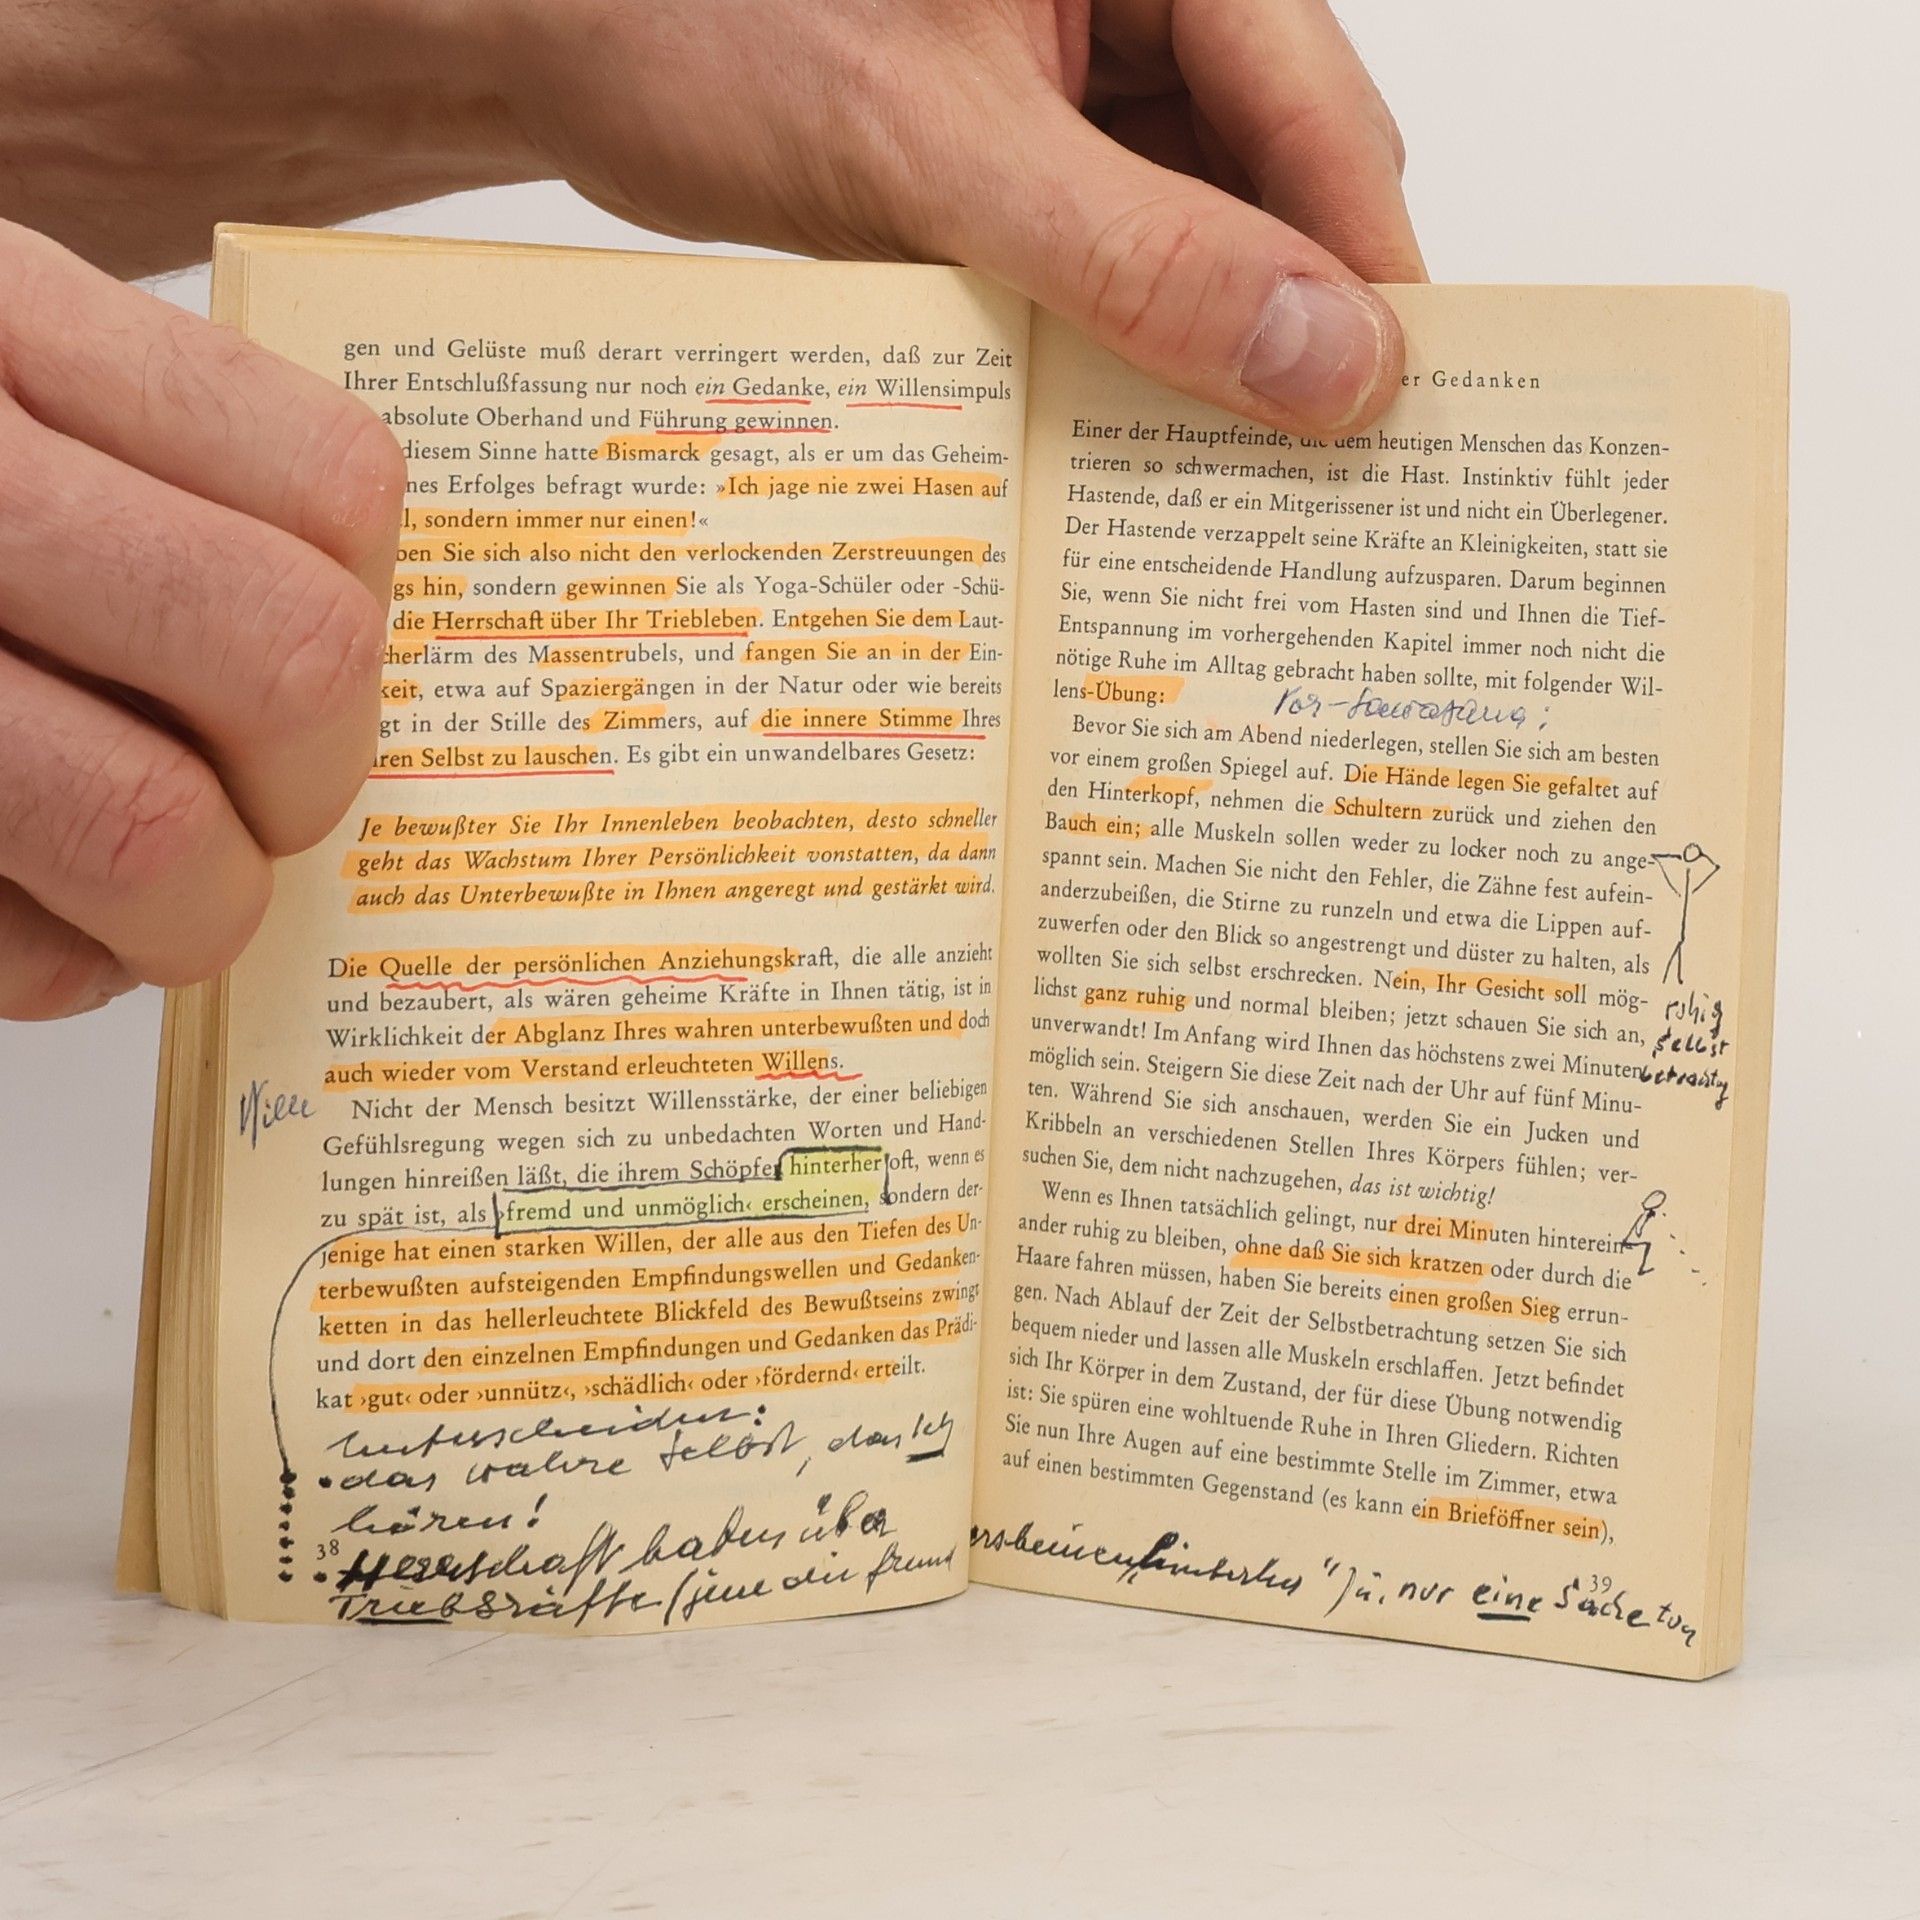 gen und Gelüste muß derart verringert werden, daß zur Zeit
Ihrer Entschlußfassung nur noch ein Gedanke, ein Willensimpuls
absolute Oberhand und Führung gewinnen.
diesem Sinne hatte Bismarck gesagt, als er um das Geheim-
nes Erfolges befragt wurde: »Ich jage nie zwei Hasen auf
l, sondern immer nur einen!«
ben Sie sich also nicht den verlockenden Zerstreuungen des
gs hin, sondern gewinnen Sie als Yoga-Schüler oder -Schü-
die Herrschaft über Ihr Triebleben. Entgehen Sie dem Laut-
cherlärm des Massentrubels, und fangen Sie an in der Ein-
keit, etwa auf Spaziergängen in der Natur oder wie bereits
gt in der Stille des Zimmers, auf die innere Stimme Ihres
ren Selbst zu lauschen. Es gibt ein unwandelbares Gesetz:
Je bewußter Sie Ihr Innenleben beobachten, desto schneller
geht das Wachstum Ihrer Persönlichkeit vonstatten, da dann
auch das Unterbewußte in Ihnen angeregt und gestärkt wird.
Die Quelle der persönlichen Anziehungskraft, die alle anzieht
und bezaubert, als wären geheime Kräfte in Ihnen tätig, ist in
Wirklichkeit der Abglanz Ihres wahren unterbewußten und doch
auch wieder vom Verstand erleuchteten Willens.
Wille
Nicht der Mensch besitzt Willensstärke, der einer beliebigen
Gefühlsregung wegen sich zu unbedachten Worten und Hand-
lungen hinreißen läßt, die ihrem Schöpfer hinterher oft, wenn es
zu spät ist, als ›fremd und unmöglich‹ erscheinen, sondern der-
jenige hat einen starken Willen, der alle aus den Tiefen des Un-
terbewußten aufsteigenden Empfindungswellen und Gedanken-
ketten in das hellerleuchtete Blickfeld des Bewußtseins zwingt
und dort den einzelnen Empfindungen und Gedanken das Prädi-
kat ›gut‹ oder ›unnütz‹, ›schädlich‹ oder ›fördernd‹ erteilt.
Unterscheiden:
das wahre Selbst, das Ich
hören!
38
Herrschaft haben über
Triebkräfte (jene die fremd
er Gedanken
Einer der Hauptfeinde, die dem heutigen Menschen das Konzen-
trieren so schwermachen, ist die Hast. Instinktiv fühlt jeder
Hastende, daß er ein Mitgerissener ist und nicht ein Überlegener.
Der Hastende verzappelt seine Kräfte an Kleinigkeiten, statt sie
für eine entscheidende Handlung aufzusparen. Darum beginnen
Sie, wenn Sie nicht frei vom Hasten sind und Ihnen die Tief-
Entspannung im vorhergehenden Kapitel immer noch nicht die
nötige Ruhe im Alltag gebracht haben sollte, mit folgender Wil-
lens-Übung:
Bevor Sie sich am Abend niederlegen, stellen Sie sich am besten
vor einem großen Spiegel auf. Die Hände legen Sie gefaltet auf
den Hinterkopf, nehmen die Schultern zurück und ziehen den
Bauch ein; alle Muskeln sollen weder zu locker noch zu ange-
spannt sein. Machen Sie nicht den Fehler, die Zähne fest aufein-
anderzubeißen, die Stirne zu runzeln und etwa die Lippen auf-
zuwerfen oder den Blick so angestrengt und düster zu halten, als
wollten Sie sich selbst erschrecken. Nein, Ihr Gesicht soll mög-
lichst ganz ruhig und normal bleiben; jetzt schauen Sie sich an,
unverwandt! Im Anfang wird Ihnen das höchstens zwei Minuten
möglich sein. Steigern Sie diese Zeit nach der Uhr auf fünf Minu-
ten. Während Sie sich anschauen, werden Sie ein Jucken und
Kribbeln an verschiedenen Stellen Ihres Körpers fühlen; ver-
suchen Sie, dem nicht nachzugehen, das ist wichtig!
ruhig
selbst
Wenn es Ihnen tatsächlich gelingt, nur drei Minuten hinterein-
ander ruhig zu bleiben, ohne daß Sie sich kratzen oder durch die
Haare fahren müssen, haben Sie bereits einen großen Sieg errun-
gen. Nach Ablauf der Zeit der Selbstbetrachtung setzen Sie sich
bequem nieder und lassen alle Muskeln erschlaffen. Jetzt befindet
sich Ihr Körper in dem Zustand, der für diese Übung notwendig
ist: Sie spüren eine wohltuende Ruhe in Ihren Gliedern. Richten
Sie nun Ihre Augen auf eine bestimmte Stelle im Zimmer, etwa
auf einen bestimmten Gegenstand (es kann ein Brieföffner sein),
39
"hinterher") u. nur eine Sache tun